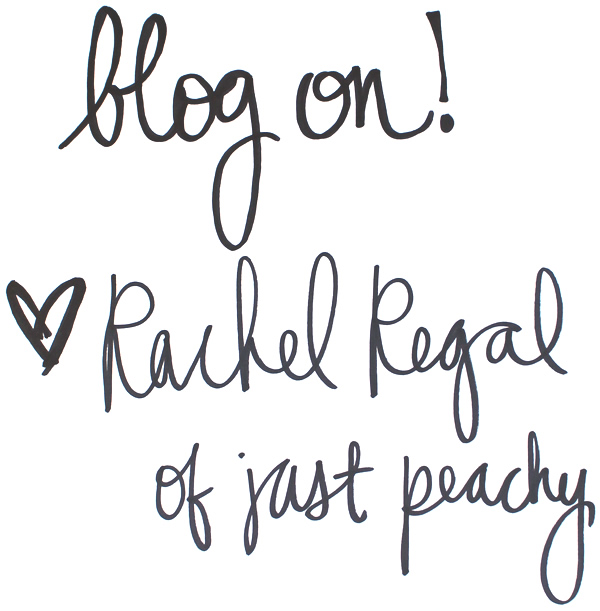 blog on!
♥ Rachel Regal
of just peachy